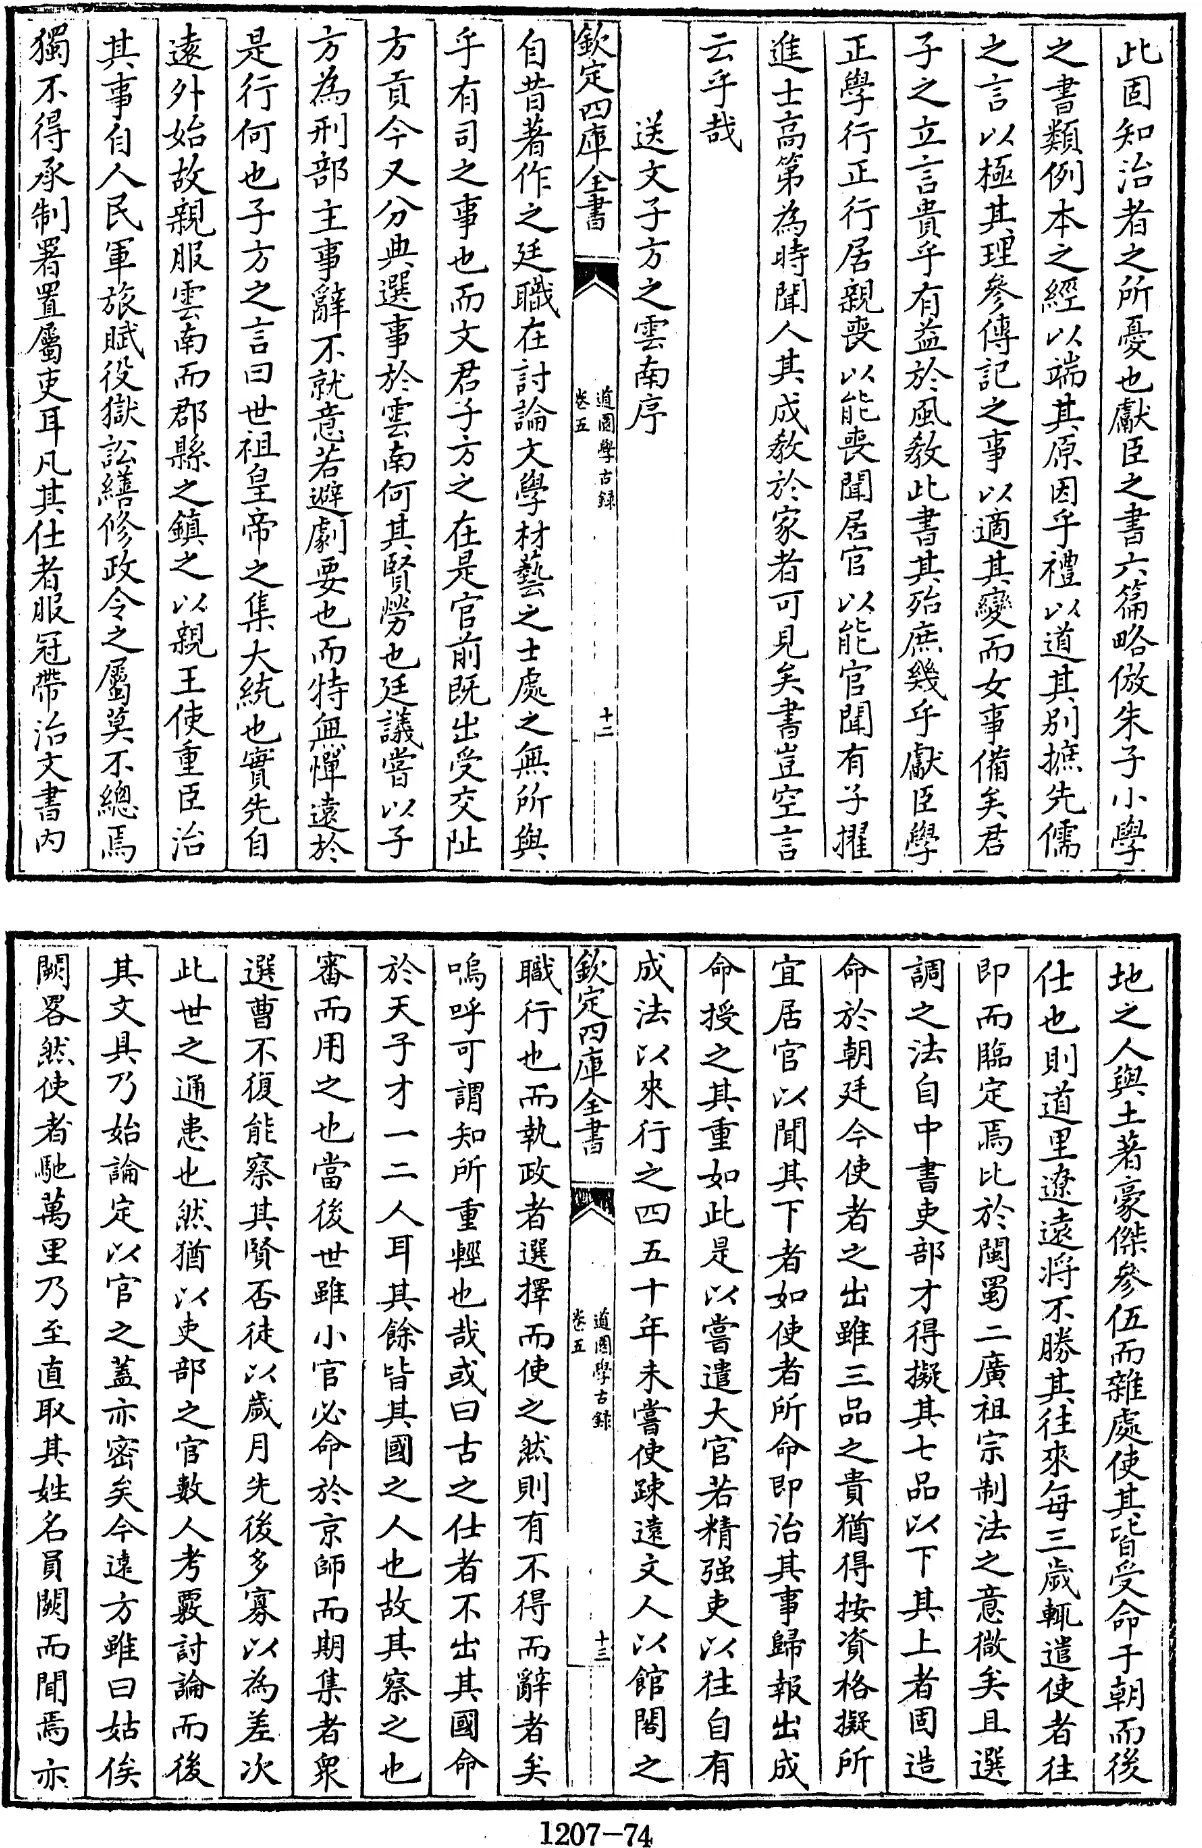 此固知治者之所憂也獻臣之書六篇略倣朱子小學
之書類例本之經以端其原因乎禮以道其别摭先儒
之言以極其理參傳記之事以適其變而女事備矣君
子之立言貴乎有益於風教此書其殆庶幾乎獻臣學
正學行正行居親喪以能喪聞居官以能官聞有子擢
進士高第為時聞人其成教於家者可見矣書豈空言
云乎哉
送文子方之雲南序
欽定四庫全書
道園學古録
卷五
十二
自昔著作之廷職在討論文學材藝之士處之無所與
乎有司之事也而文君子方之在是官前既出受交阯
方貢今又分典選事於雲南何其賢勞也廷議嘗以子
方為刑部主事辭不就意若避劇要也而特無憚逺於
是行何也子方之言曰世祖皇帝之集大統也實先自
逺外始故親服雲南而郡縣之鎮之以親王使重臣治
其事自人民軍旅賦役獄訟繕修政令之屬莫不總焉
獨不得承制署置屬吏耳凡其仕者服冠帶治文書内
地之人與土著豪傑參伍而雜處使其皆受命于朝而後
仕也則道里遼逺将不勝其往來每三歲輒遣使者往
即而臨定焉比於閩蜀二廣祖宗制法之意微矣且選
調之法自中書吏部才得擬其七品以下其上者固造
命於朝廷今使者之出雖三品之貴猶得按資格擬所
宜居官以聞其下者如使者所命即治其事歸報出成
命授之其重如此是以嘗遣大官若精强吏以往自有
成法以來行之四五十年未嘗使疎逺文人以館閣之
欽定四庫全書
道園學古録
卷五
十三
職行也而執政者選擇而使之然則有不得而辭者矣
嗚呼可謂知所重輕也哉或曰古之仕者不出其國命
於天子才一二人耳其餘皆其國之人也故其察之也
審而用之也當後世雖小官必命於京師而期集者衆
選曹不復能察其賢否徒以歲月先後多寡以為差次
此世之通患也然猶以吏部之官數人考覈討論而後
其文具乃始論定以官之蓋亦密矣今逺方雖曰姑俟
闕畧然使者馳萬里乃至直取其姓名員闕而閒焉亦
1207-74